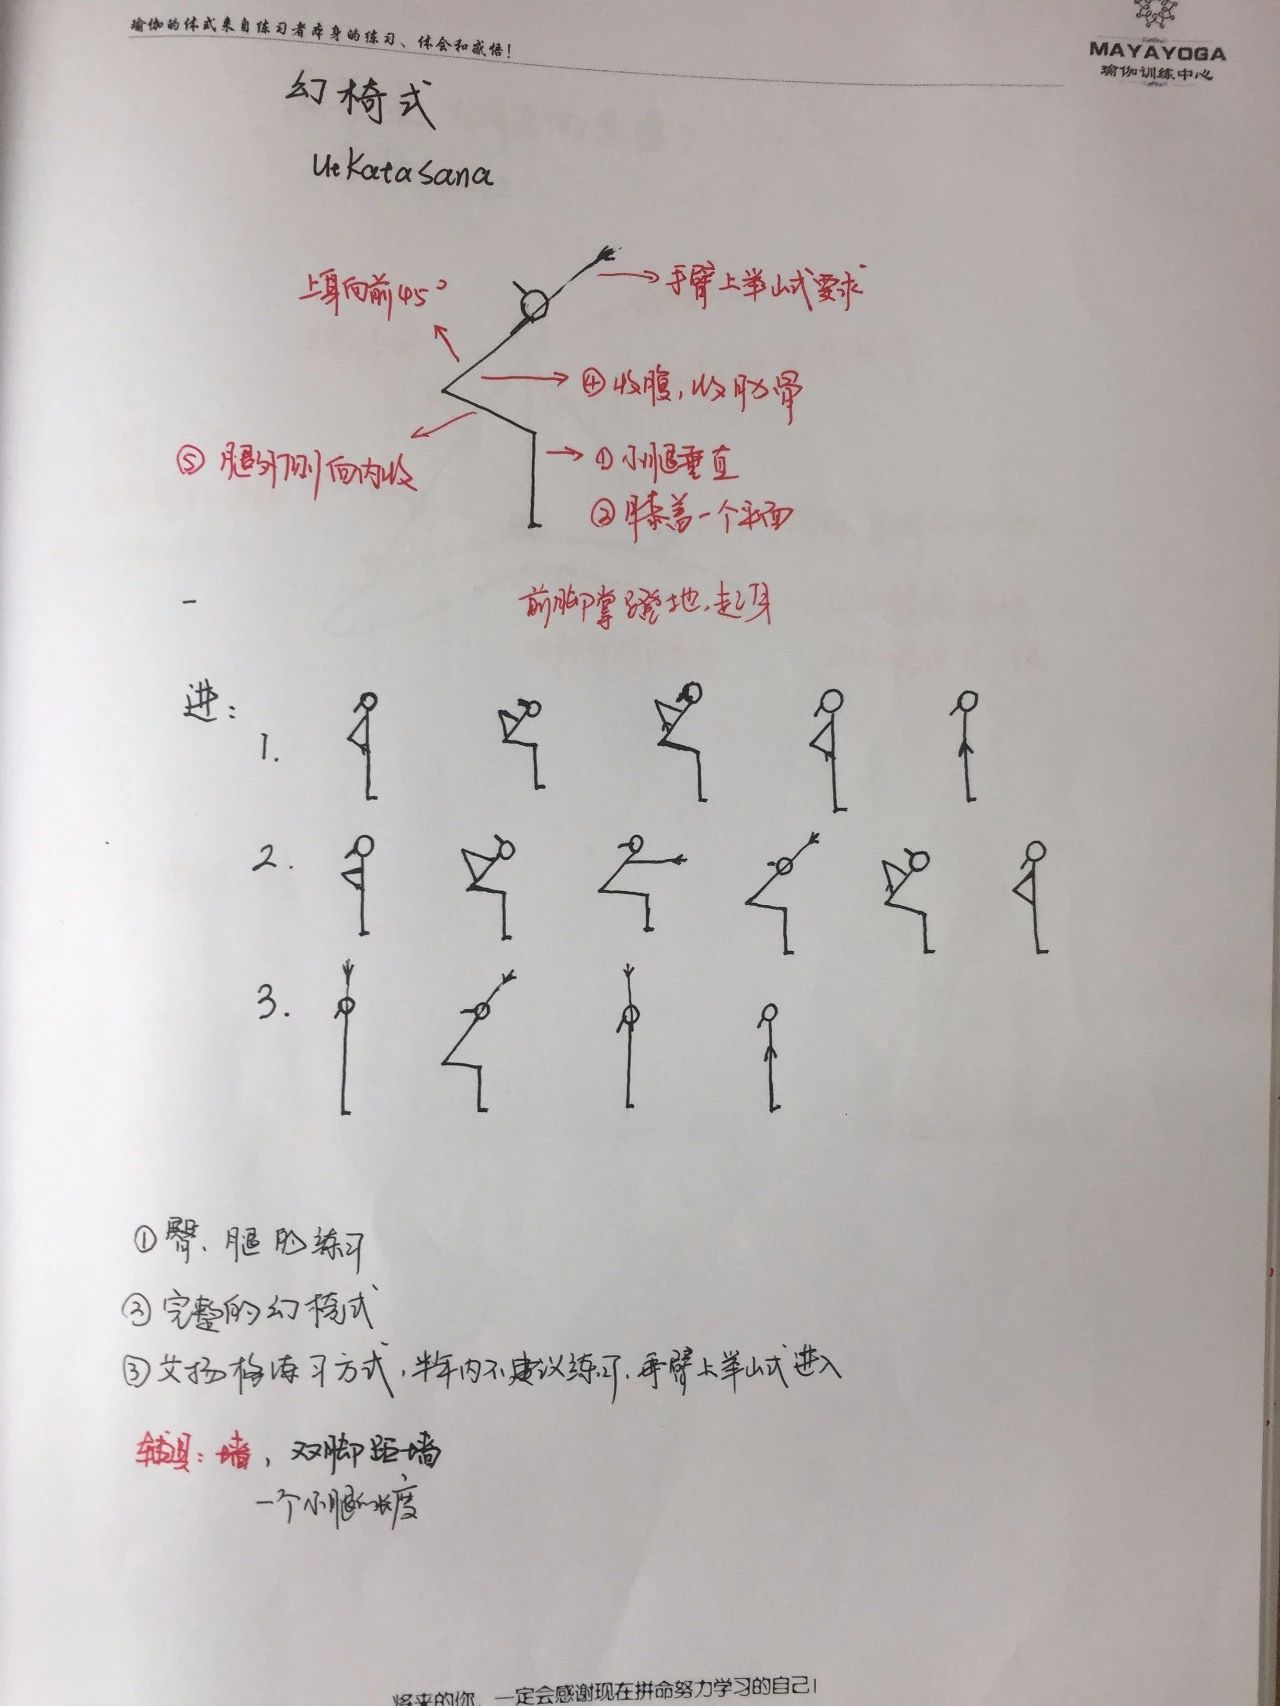 瑜伽的体式来自练习者本身的练习、体会和感悟!
MAYAYOGA
瑜伽训练中心
幻椅式
Utkatasana
上身向前45°
手臂上举山式要求
④收腹,收肋骨
⑤腿外侧向内收
①小腿垂直
②膝盖一个平面
前脚掌蹬地,起身
进:
1.
2.
3.
①臀、腿的练习
②完整的幻椅式
③艾扬格练习方式,半年内不建议练习,手臂上举山式进入
辅具:墙,双脚距墙
一个小腿的长度
将来的你,一定会感谢现在拼命努力学习的自己!